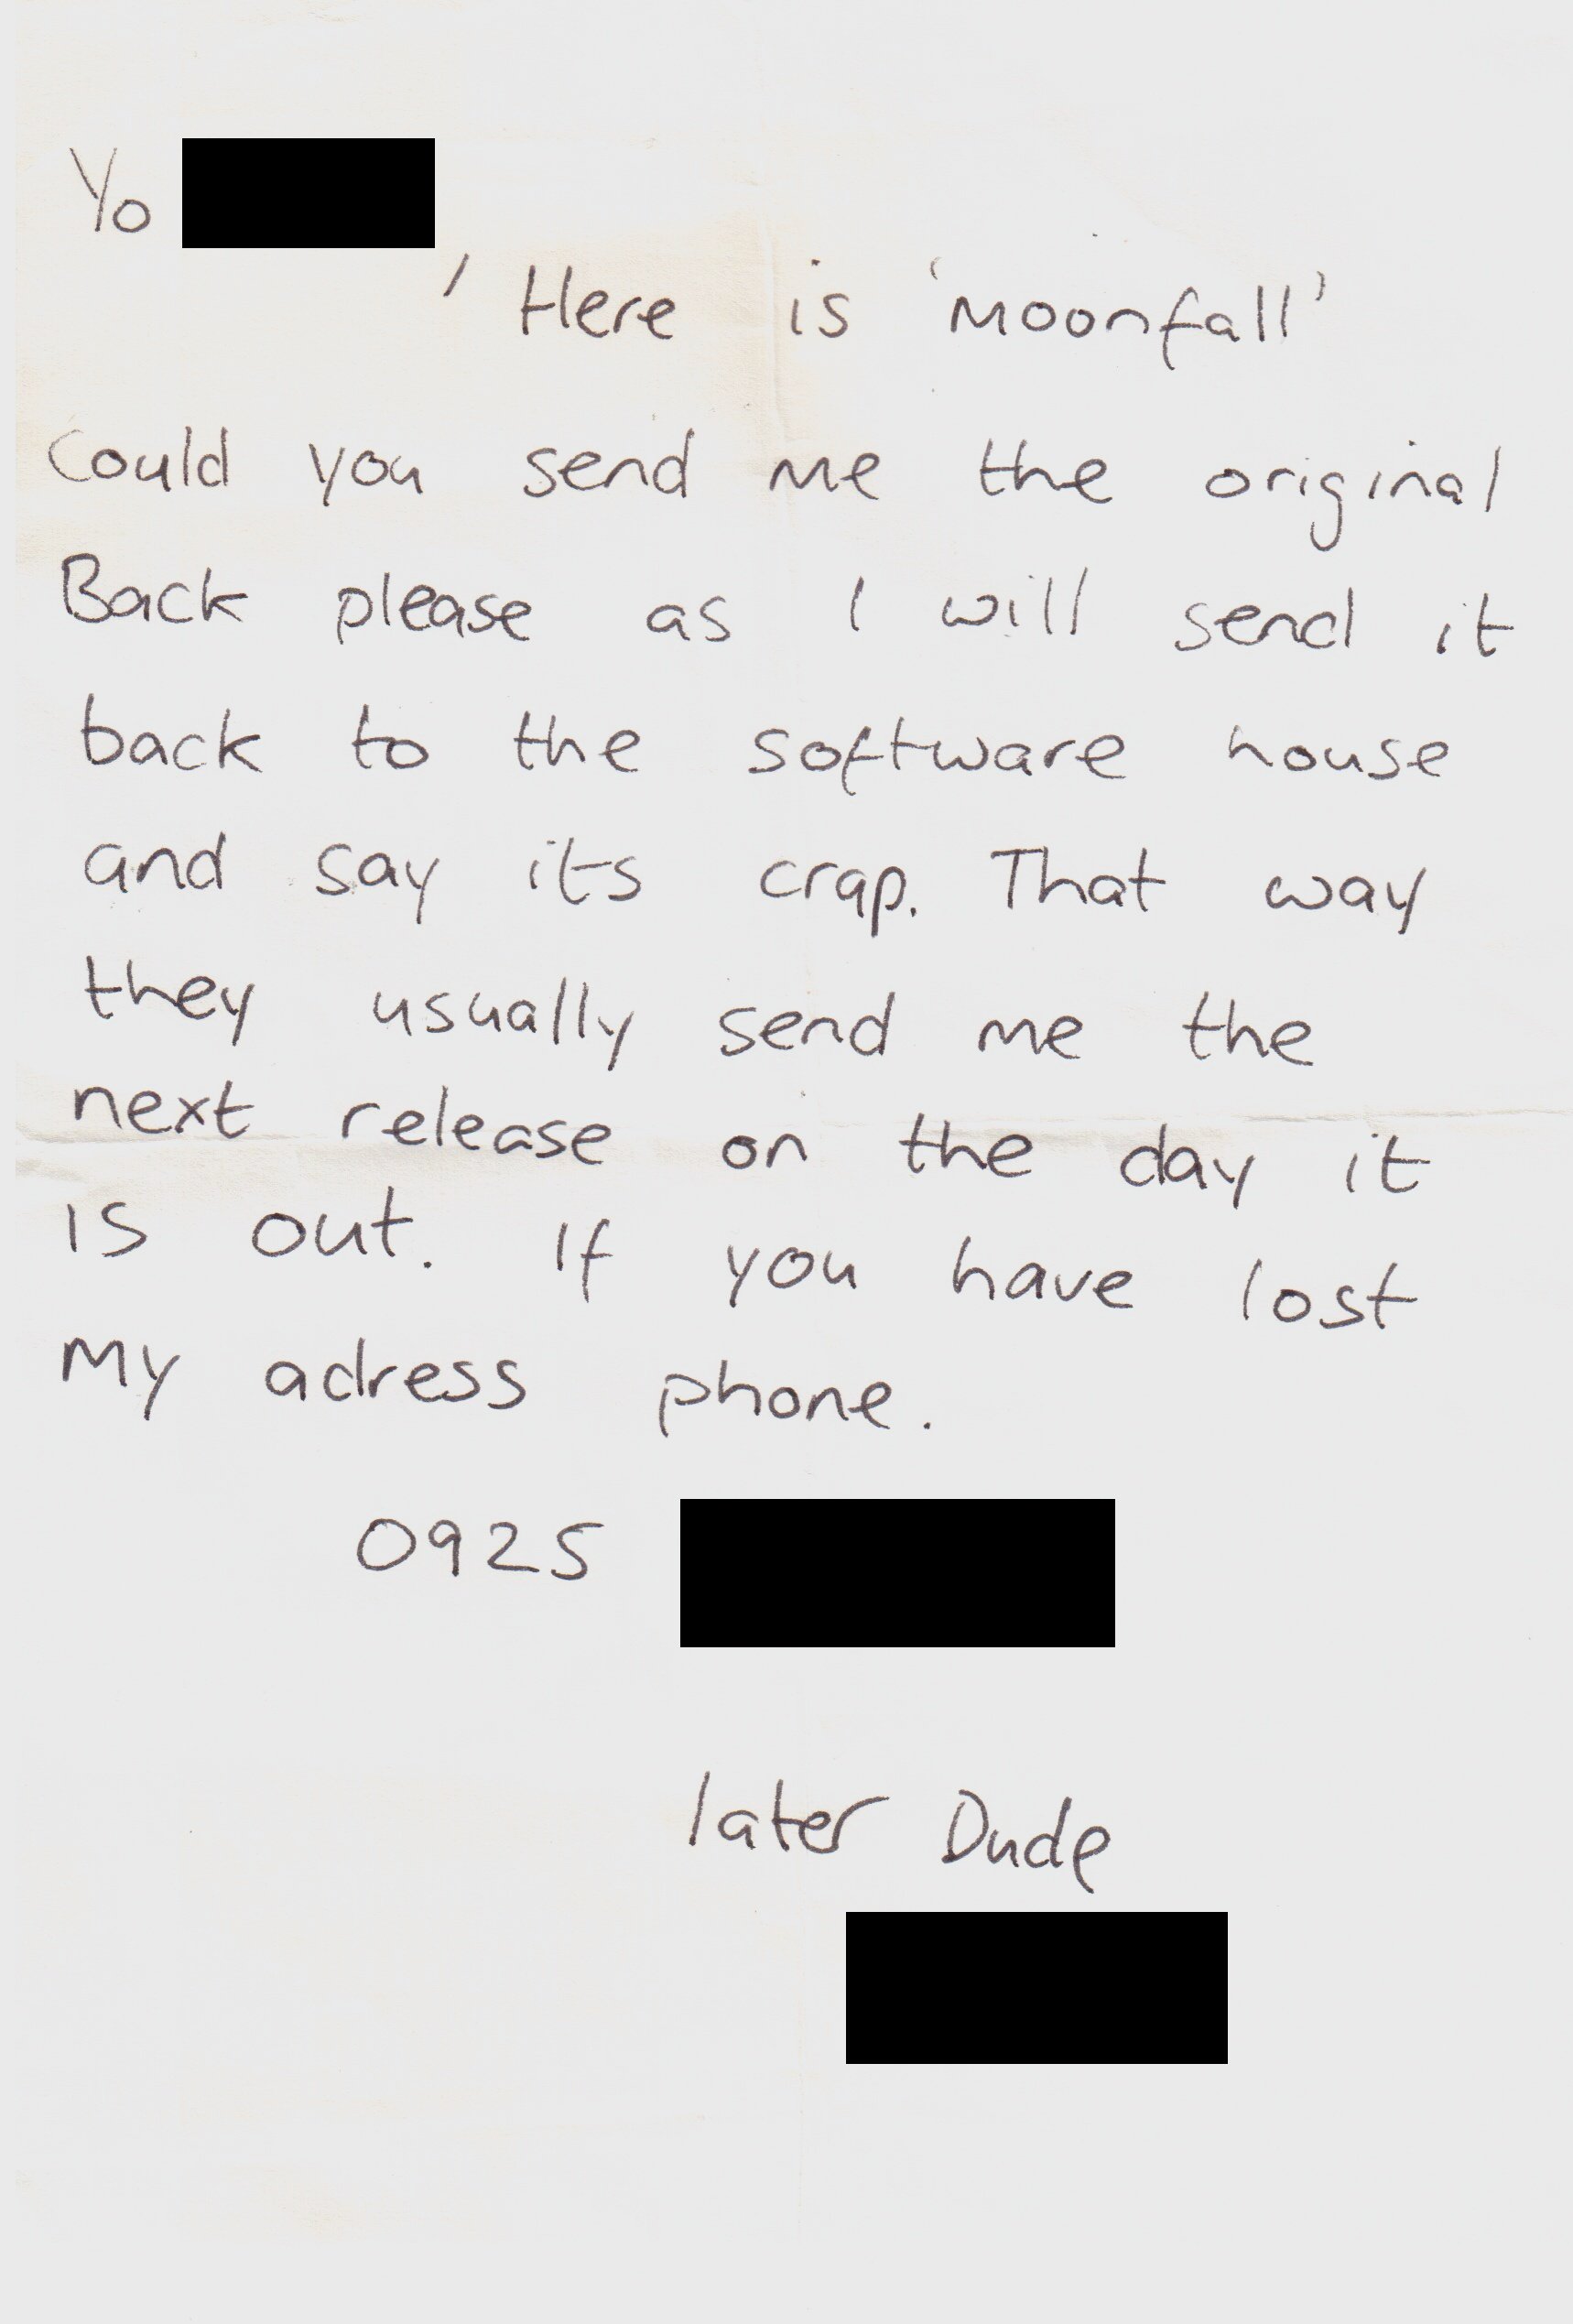 Yo
, Here is 'Moonfall'
Could you send me the original
Back please as I will send it
back to the software house
and say its crap. That way
they usually send me the
next release on the day it
is out. If you have lost
My adress phone.
0925
later Dude